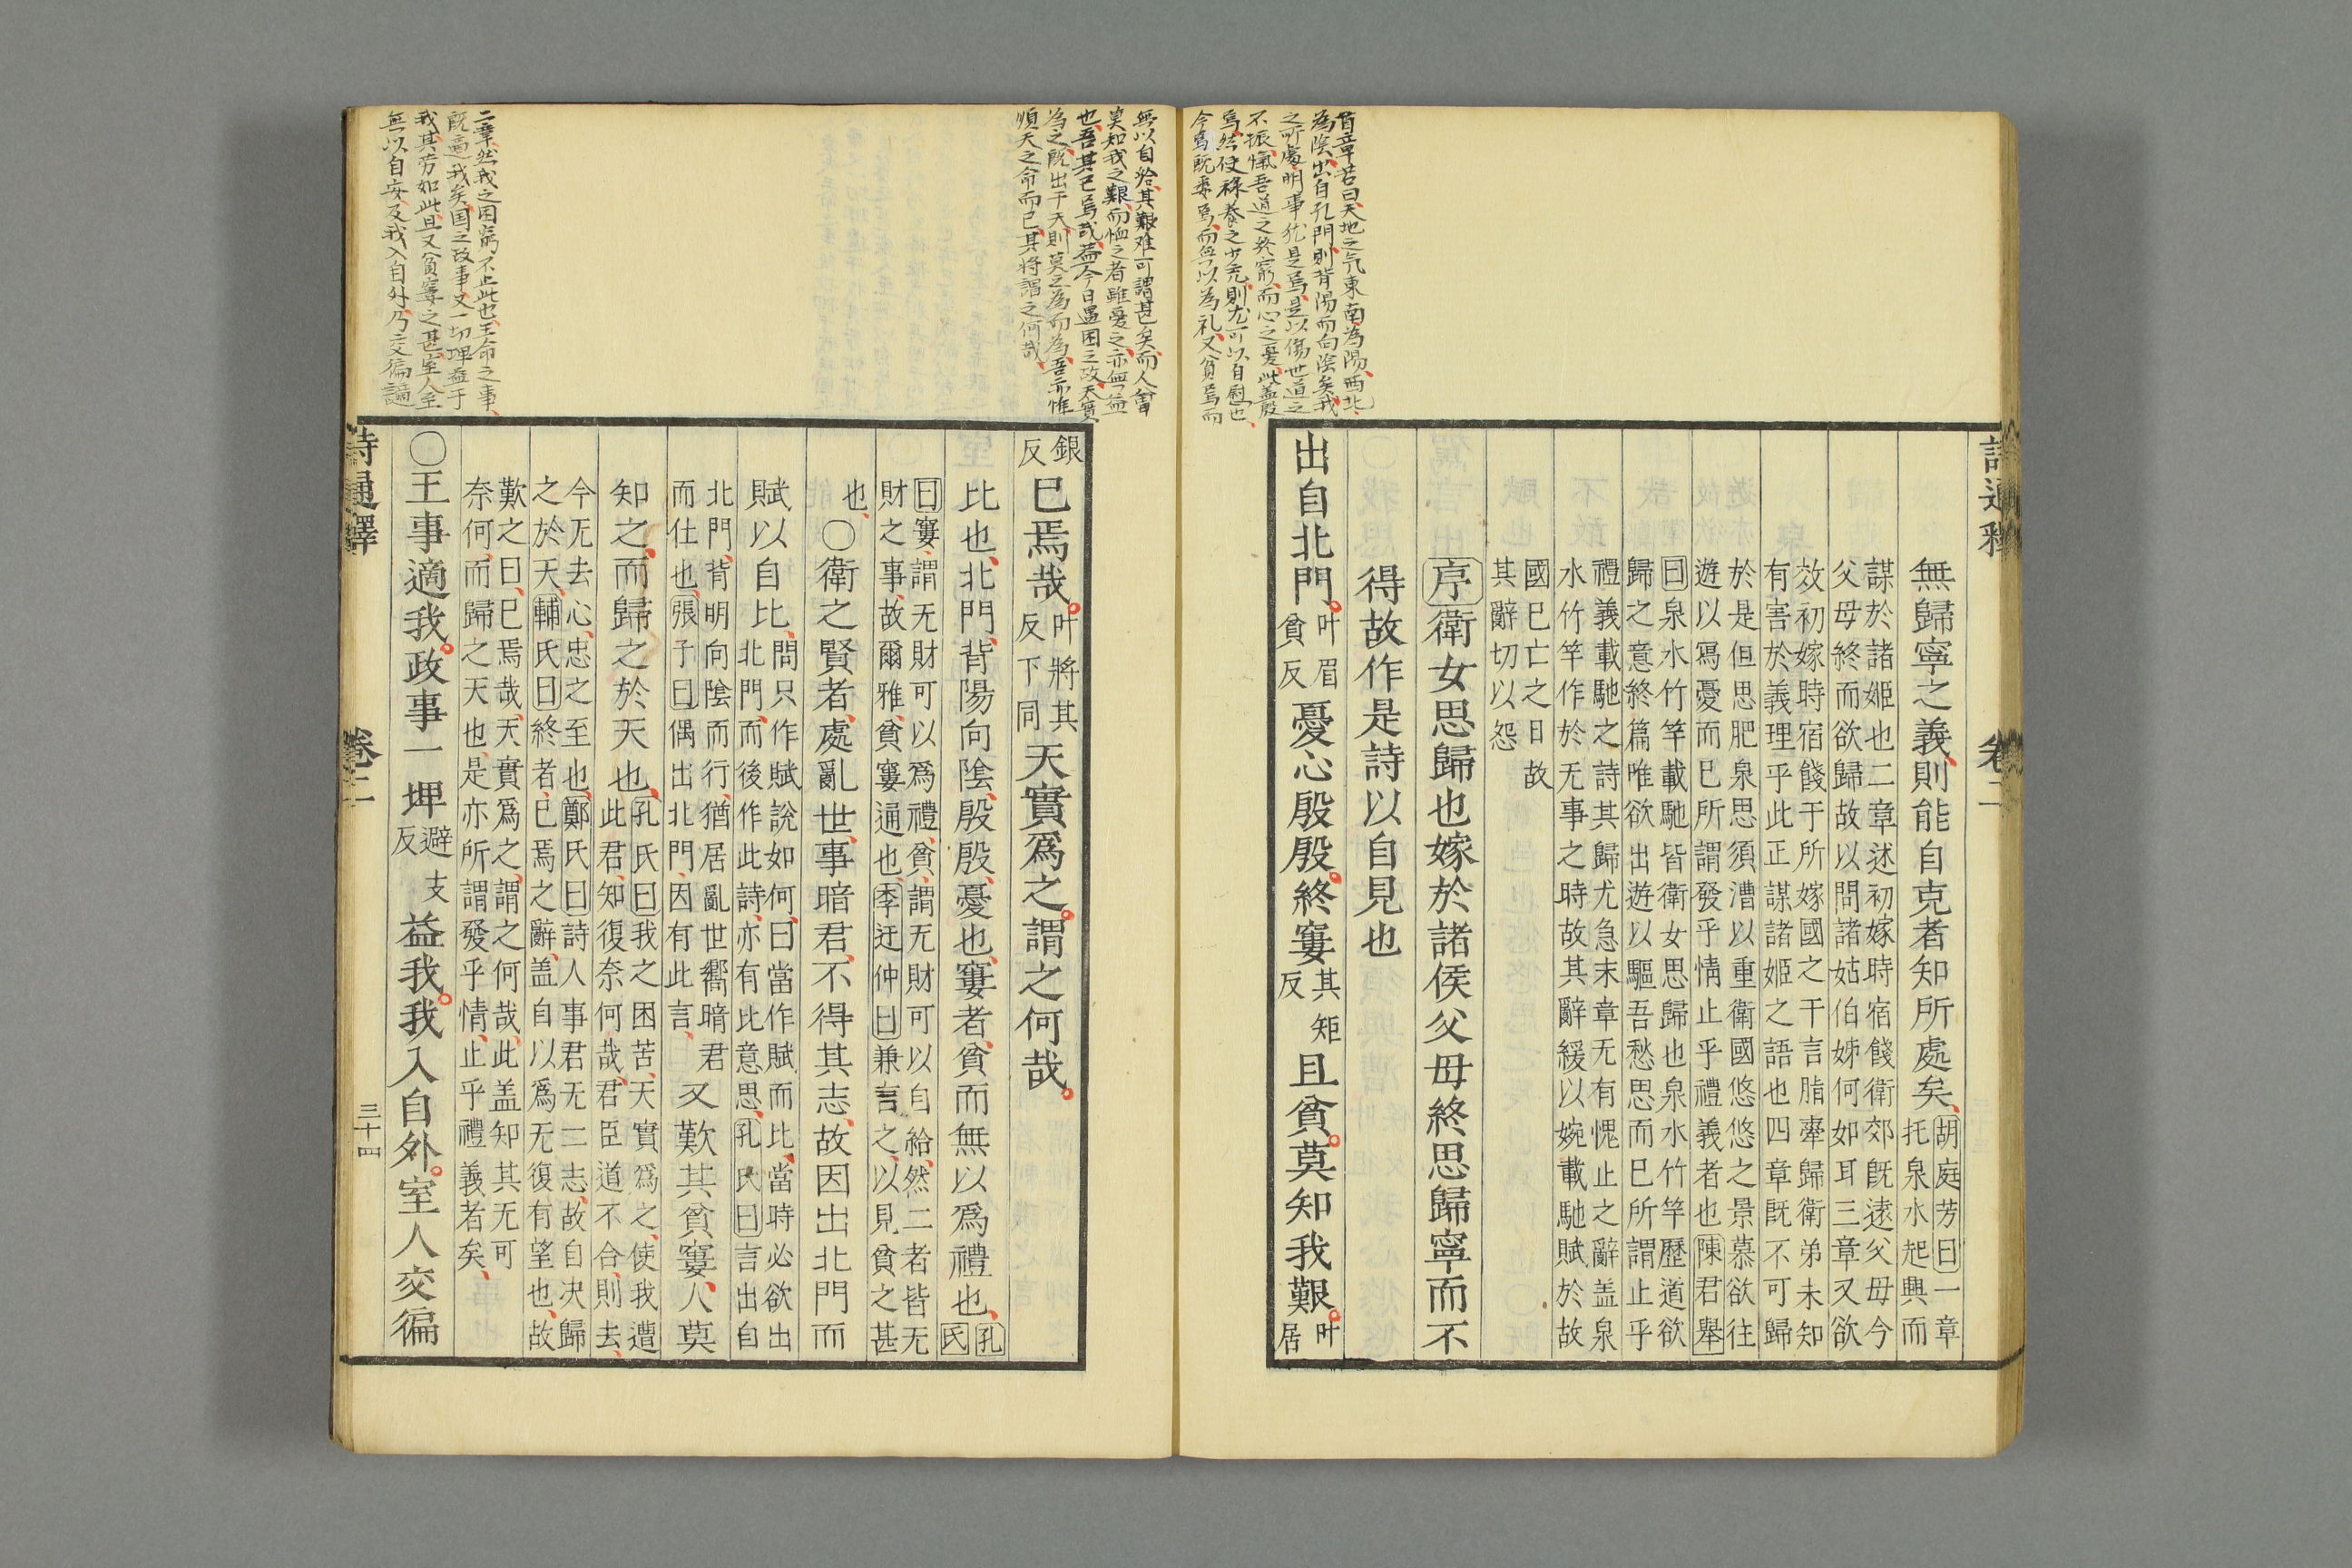 首章若曰天地之气東南為陽西北
為陰出自孔門則背陽而向陰矣我
之所處明事犹是焉是以傷世道之
不振慨吾道之終窮而心之憂此盖殷
焉然使祿養之尤則尤可以自慰也
今焉既委焉而無以為礼又貧焉而
詩通釋
卷二
無歸寧之義則能自克者知所處矣胡庭芳曰一章
托泉水起興而
謀於諸姬也二章述初嫁時宿餞衛郊旣遠父母今
父母終而欲歸故以問諸姑伯姊何如耳三章又欲
效初嫁時宿餞于所嫁國之干言脂舝歸衛弟未知
有害於義理乎此正謀諸姬之語也四章旣不可歸
於是但思肥泉思須漕以重衛國悠悠之景慕欲往
遊以寫憂而已所謂發乎情止乎禮義者也陳君舉
曰泉水竹竿載馳皆衛女思歸也泉水竹竿歷道欲
歸之意終篇唯欲出遊以驅吾愁思而已所謂止乎
禮義載馳之詩其歸尤急末章无有愧止之辭盖泉
水竹竿作於无事之時故其辭緩以婉載馳賦於故
國已亡之日故
其辭切以怨
序衛女思歸也嫁於諸侯父母終思歸寧而不
得故作是詩以自見也
出自北門叶眉貧反憂心殷殷終窶其矩反且貧莫知我艱叶居
無以自給其艱难可謂甚矣而人曾
莫知我之艱而恤之者雖憂之亦無益
也吾其已焉哉葢今日遇困之政天實
為之既出于天則莫之為而為吾亦惟
順天之命而已其將謂之何哉
銀反已焉哉叶將其反下同天實爲之謂之何哉
比也北門背陽向陰殷殷憂也窶者貧而無以爲禮也孔氏
曰窶謂无財可以爲禮貧謂无財可以自給然二者皆无
財之事故爾雅貧窶通也李迂仲曰兼言之以見貧之甚
也〇衛之賢者處亂世事暗君不得其志故因出北門而
賦以自比問只作賦說如何曰當作賦而比當時必欲出
北門而後作此詩亦有比意思孔氏曰言出自
北門背明向陰而行猶居亂世嚮暗君
而仕也張子曰偶出北門因有此言又歎其貧窶人莫
知之而歸之於天也孔氏曰我之困苦天實爲之使我遭
此君知復奈何哉君臣道不合則去
今无去心忠之至也鄭氏曰詩人事君无二志故自决歸
之於天輔氏曰終者已焉之辭盖自以爲无復有望也故
歎之曰已焉哉天實爲之謂之何哉此盖知其无可
奈何而歸之天也是亦所謂發乎情止乎禮義者矣
二章然我之困窮不止此也王命之事
既適我矣国之政事又一切埤益于
我其劳如此且又貧窶之甚室人至
無以自安及我入自外乃交徧讁
〇王事適我政事一埤避支反益我我入自外室人交徧
詩通釋
卷二
三十四